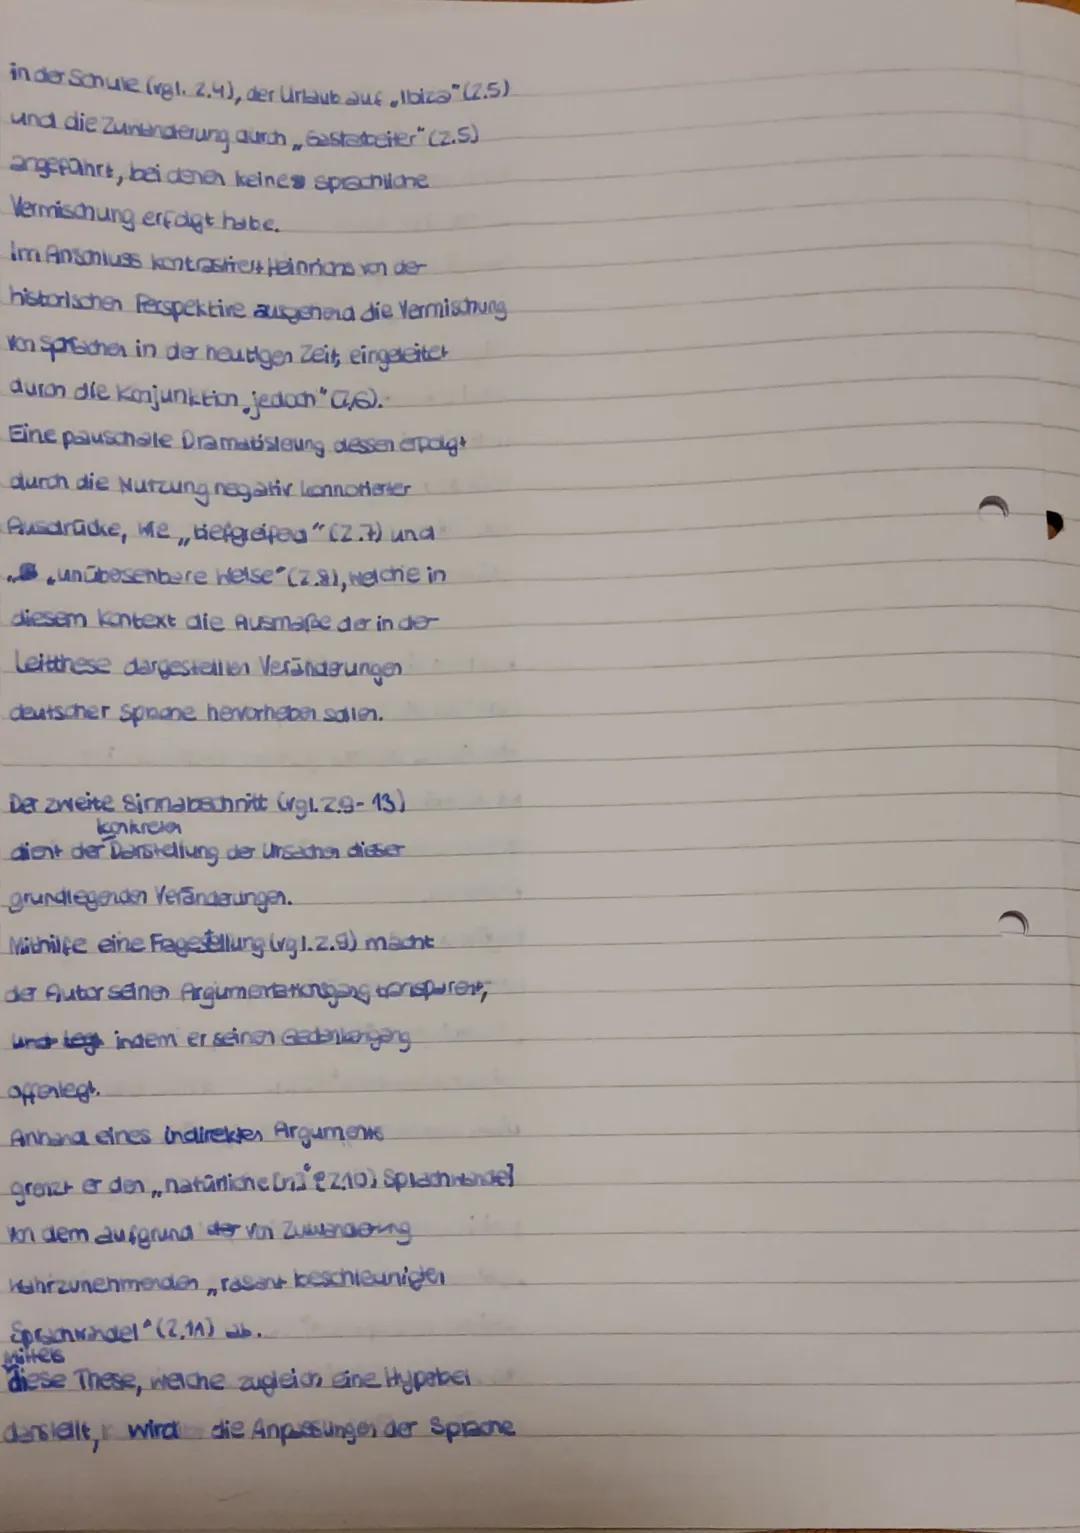 in der Schule (vgl. Z.4), der Urlaub auf „Ibiza" (Z.5)
und die Zuwanderung durch „Gastarbeiter" (Z.5)
angeführt, bei denen keine sprachliche
Vermischung erfolgt habe.
Im Anschluss kontrastiert Heinrichs von der
historischen Perspektive ausgehend die Vermischung
von Sprachen in der heutigen Zeit, eingeleitet
durch die Konjunktion „jedoch" (Z.6).
Eine pauschale Dramatisieung dessen erfolgt
durch die Nutzung negativ konnotierter
Ausdrücke, wie „tiefgreifend" (Z.7) und
„unübersehbare Weise" (Z.8), welche in
diesem Kontext die Ausmaße der in der
Leitthese dargestellten Veränderungen
deutscher Sprache hervorheben sollen.
Der zweite Sinnabschnitt (vgl. Z.9-13)
konkreten
dient der Darstellung der Ursachen dieser
grundlegenden Veränderungen.
Mithilfe eine Fragestellung (vgl. Z.9) macht
der Autor seinen Argumentationsgang transparent,
indem er seinen Gedankengang
offenlegt.
Anhand eines indirekten Arguments
grenzt er den „natürliche[n]" (Z.10) Sprachwandel
von dem aufgrund von Zuwanderung
wahrzunehmenden „rasant beschleunigten
Sprachwandel" (Z.11) ab.
Mittels
diese These, welche zugleich eine Hyperbel
darstellt, wird die Anpassungen der Sprache